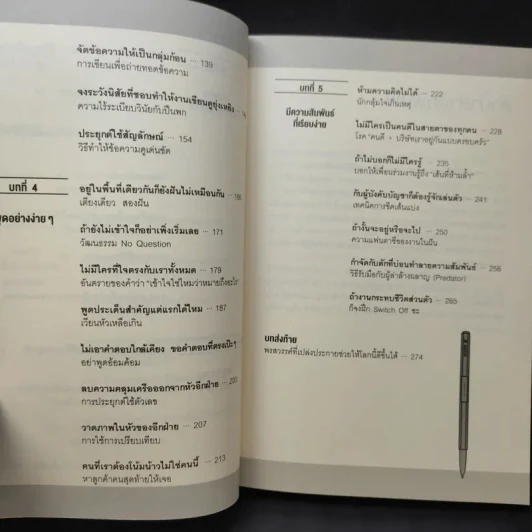 จัดข้อความให้เป็นกลุ่มก้อน ··· 139
การเขียนเพื่อถ่ายทอดข้อความ
จงระวังนิสัยที่ชอบทำให้งานเขียนดูยุ่งเหยิง
ความไร้ระเบียบวินัยกับเป็นพก
ประยุกต์ใช้สัญลักษณ์ ··· 154
วิธีทำให้ข้อความดูเด่นชัด
บทที่ 4
พูดอย่างง่าย ๆ
อยู่ในพื้นที่เดียวกันก็ยังฝันไม่เหมือนกัน
เตียงเดียว สองฝัน
ถ้ายังไม่เข้าใจก็อย่าเพิ่งเริ่มเลย ··· 171
วัฒนธรรม No Question
ไม่มีใครที่ใจตรงกับเราทั้งหมด ··· 179
อันตรายของคำว่า "เข้าใจใช่ไหมว่าหมายถึงอะไร"
พูดประเด็นสำคัญแต่แรกได้ไหม ··· 187
เวียนหัวเหลือเกิน
ไม่เอาคำตอบใกล้เคียง ขอคำตอบที่ตรงเป๊ะๆ
อย่าพูดอ้อมค้อม
ลบความคลุมเครือออกจากหัวอีกฝ่าย ··· 200
การประยุกต์ใช้ตัวเลข
วาดภาพในหัวของอีกฝ่าย ··· 207
การใช้การเปรียบเทียบ
คนที่เราต้องโน้มน้าวไม่ใช่คนนี้ ··· 213
หาลูกค้าคนสุดท้ายให้เจอ
บทที่ 5
มีความสัมพันธ์
ที่เรียบง่าย
ห้ามความคิดไม่ได้ ··· 222
นักกลุ้มใจเกินเหตุ
ไม่มีใครเป็นคนดีในสายตาของทุกคน ··· 228
โรค "คนดี + บริษัทเราอยู่กันแบบครอบครัว"
ถ้าไม่บอกก็ไม่มีใครรู้ ··· 235
บอกให้เพื่อนร่วมงานรู้ถึง "เส้นที่ห้ามล้ำ"
กับผู้บังคับบัญชาก็ต้องรู้จักเล่นตัว ··· 241
เทคนิคการขีดเส้นแบ่ง
ถ้างั้นจะอยู่หรือจะไป ··· 250
ความแฟนตาซีของงานในฝัน
กำจัดกับดักที่บ่อนทำลายความสัมพันธ์ ··· 256
วิธีรับมือกับผู้ล่าล้างผลาญ (Predator)
ถ้างานกระทบชีวิตส่วนตัว ··· 265
ก็จงฝึก Switch Off ซะ
บทส่งท้าย
พรสวรรค์ที่เปล่งประกายช่วยให้โลกนี้ดีขึ้นได้ ··· 274